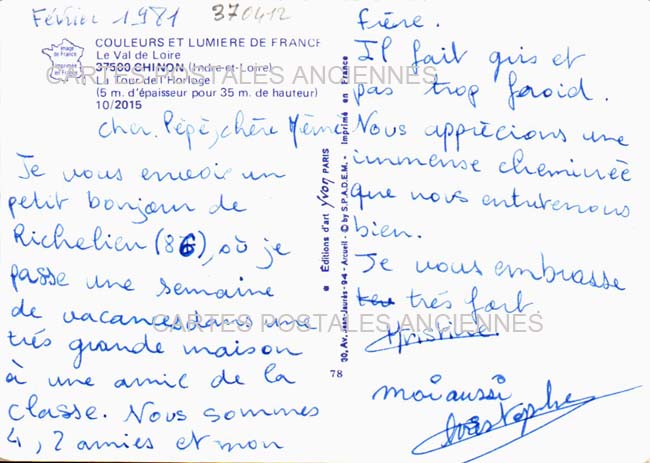 Février 1981 370412
Image de France
Imprimée en France
COULEURS ET LUMIERE DE FRANCE
Le Val de Loire
37500 CHINON (Indre-et-Loire)
La Tour de l'Horloge
(5 m. d'épaisseur pour 35 m. de hauteur)
10/2015
CARTES POSTALES ANCIENNES
Cher Pépé, chère Mémé
Je vous envoie un
petit bonjour de
Richelieu (86), où je
passe une semaine
de vacances dans une
très grande maison
à une amie de la
classe. Nous sommes
4, 2 amies et mon
Editions d'art yvon PARIS
30, Av. Jean-Jaurès - 94 - Arcueil - © by S.P.A.D.E.M. - Imprimé en France
78
frère.
Il fait gris et
pas trop froid.
Nous apprécions une
immense cheminée
que nous entretenons
bien.
Je vous embrasse
très fort
Christine.
CARTES POSTALES ANCIENNES
moi aussi
Christophe